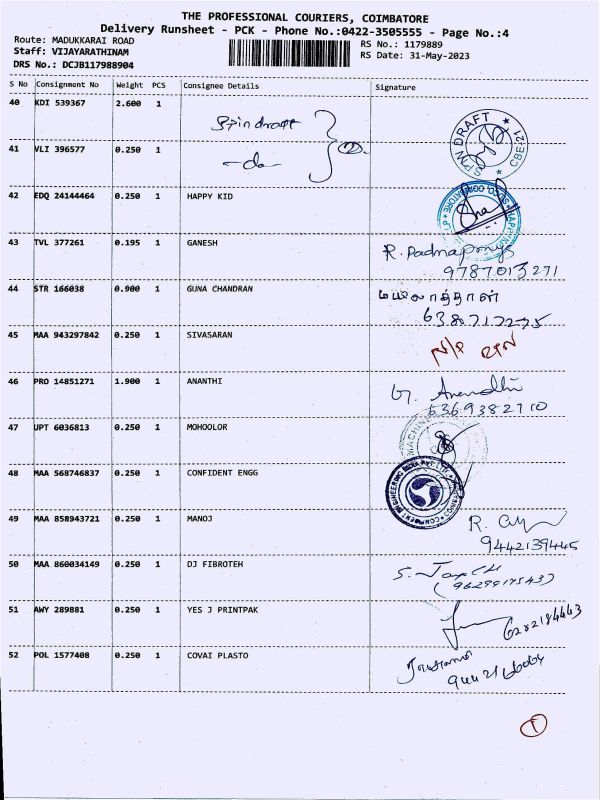 THE PROFESSIONAL COURIERS, COIMBATORE
Delivery Runsheet - PCK - Phone No.:0422-3505555 - Page No.:4
Route: MADUKKARAI ROAD RS No.: 1179889
Staff: VIJAYARATHINAM RS Date: 31-May-2023
DRS No.: DCJB117988904
S No Consignment No Weight PCS Consignee Details Signature
40 KDI 539367 2.600 1 Spindraft
SPIN DRAFT CBE-21
41 VLI 396577 0.250 1 -do- 2
42 EDQ 24144464 0.250 1 HAPPY KID
43 TVL 377261 0.195 1 GANESH R.
9787013271
44 STR 166038 0.900 1 GUNA CHANDRAN மயிலாத்தாள்
6382717275
45 MAA 943297842 0.250 1 SIVASARAN N/P
46 PRO 14851271 1.900 1 ANANTHI G. Anandhi
5369382710
47 UPT 6036813 0.250 1 MOHOOLOR
48 MAA 568746837 0.250 1 CONFIDENT ENGG
49 MAA 858943721 0.250 1 MANOJ R.
9442139445
50 MAA 860034149 0.250 1 DJ FIBROTEH S.
51 AWY 289881 0.250 1 YES J PRINTPAK 6282184443
52 POL 1577408 0.250 1 COVAI PLASTO